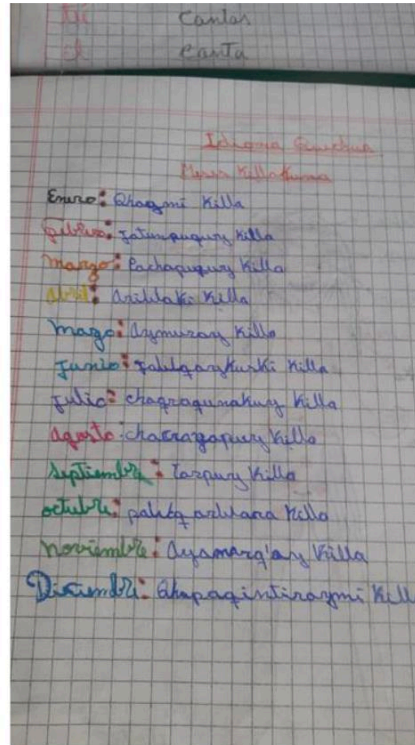 tú cantas
el canta
Idioma Quechua
Meses Killakuna
Enero: Qhaqmi Killa
febrero: jatunpuquy Killa
marzo: Pachapuquy Killa
abril: ariwaki Killa
mayo: Aymuray Killa
junio: Killa
julio: chaqraqunakuy Killa
agosto: chacrayapuy Killa
septiembre: tarpuy Killa
octubre: Killa
noviembre: Ayamarq'ay Killa
Diciembre: Qhapaqintiraymi Kill